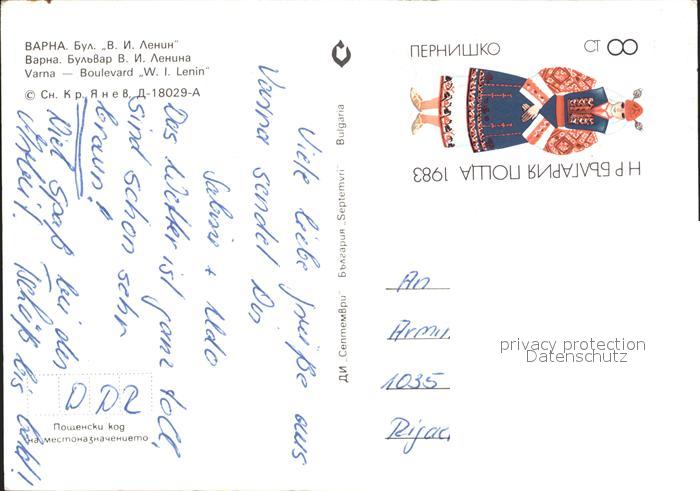 ВАРНА. Бул. „В. И. Ленин"
Варна. Бульвар В. И. Ленина
Varna — Boulevard „W. I. Lenin"
© Сн. Кр. Янев, Д-18029-А
Viele liebe Grüße aus
Varna sendet Dir
Sabine + Udo
Das Wetter ist ganz toll,
sind schon sehr
braun!
Viel Spaß bei der
Arbeit! Tschüß bis bald!
DDR
Пощенски код
на местоназначението
ДИ „Септември" България „Septemvri" Bulgaria
ПЕРНИШКО
СТ 8
НР БЪЛГАРИЯ ПОЩА 1983
An
1035
privacy protection
Datenschutz